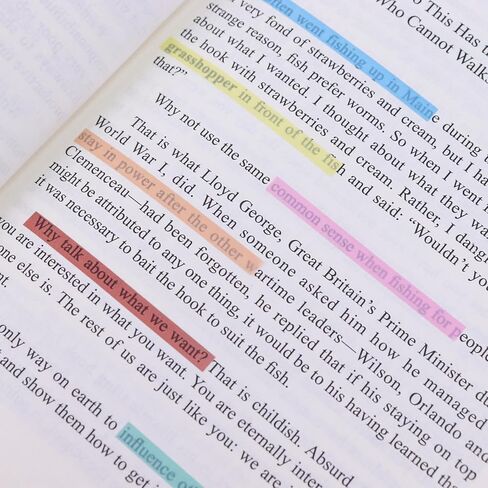 o This Has
Who Cannot Walk
ften went fishing up in Maine during t
very fond of strawberries and cream, but I ha
strange reason, fish prefer worms. So when I went f
about what I wanted. I thought about what they wa
the hook with strawberries and cream. Rather, I dangl
grasshopper in front of the fish and said: “Wouldn’t yo
that?”
Why not use the same common sense when fishing for people
That is what Lloyd George, Great Britain’s Prime Minister du
World War I, did. When someone asked him how he managed
stay in power after the other wartime leaders—Wilson, Orlando and
Clemenceau—had been forgotten, he replied that if his staying on top
might be attributed to any one thing, it would be to his having learned tha
it was necessary to bait the hook to suit the fish.
Why talk about what we want? That is childish. Absurd
you are interested in what you want. You are eternally inter
one else is. The rest of us are just like you: we are
nt.
only way on earth to influence ot
and show them how to get i